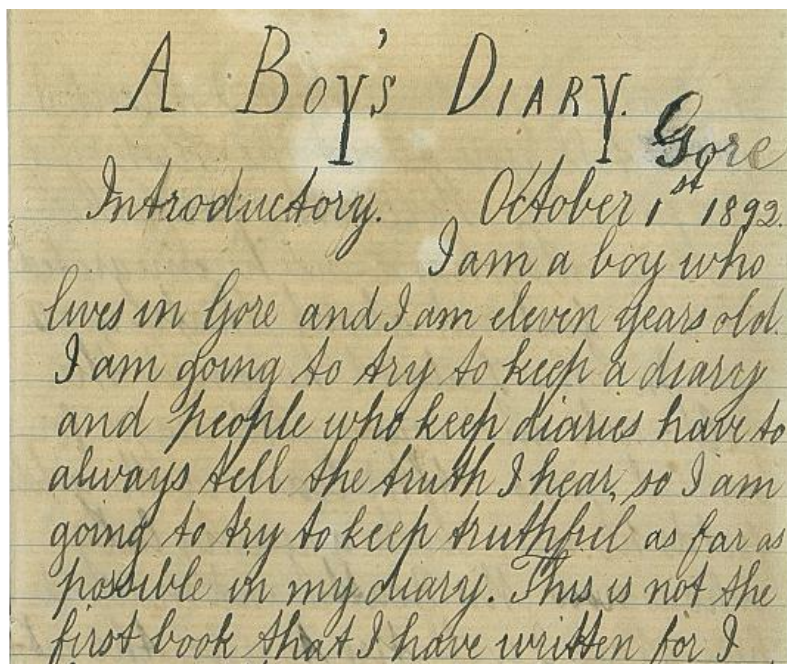 A Boy's Diary.
Gore
Introductory. October 1st 1892.
I am a boy who
lives in Gore and I am eleven years old.
I am going to try to keep a diary
and people who keep diaries have to
always tell the truth I hear, so I am
going to try to keep truthful as far as
possible in my diary. This is not the
first book that I have written for I